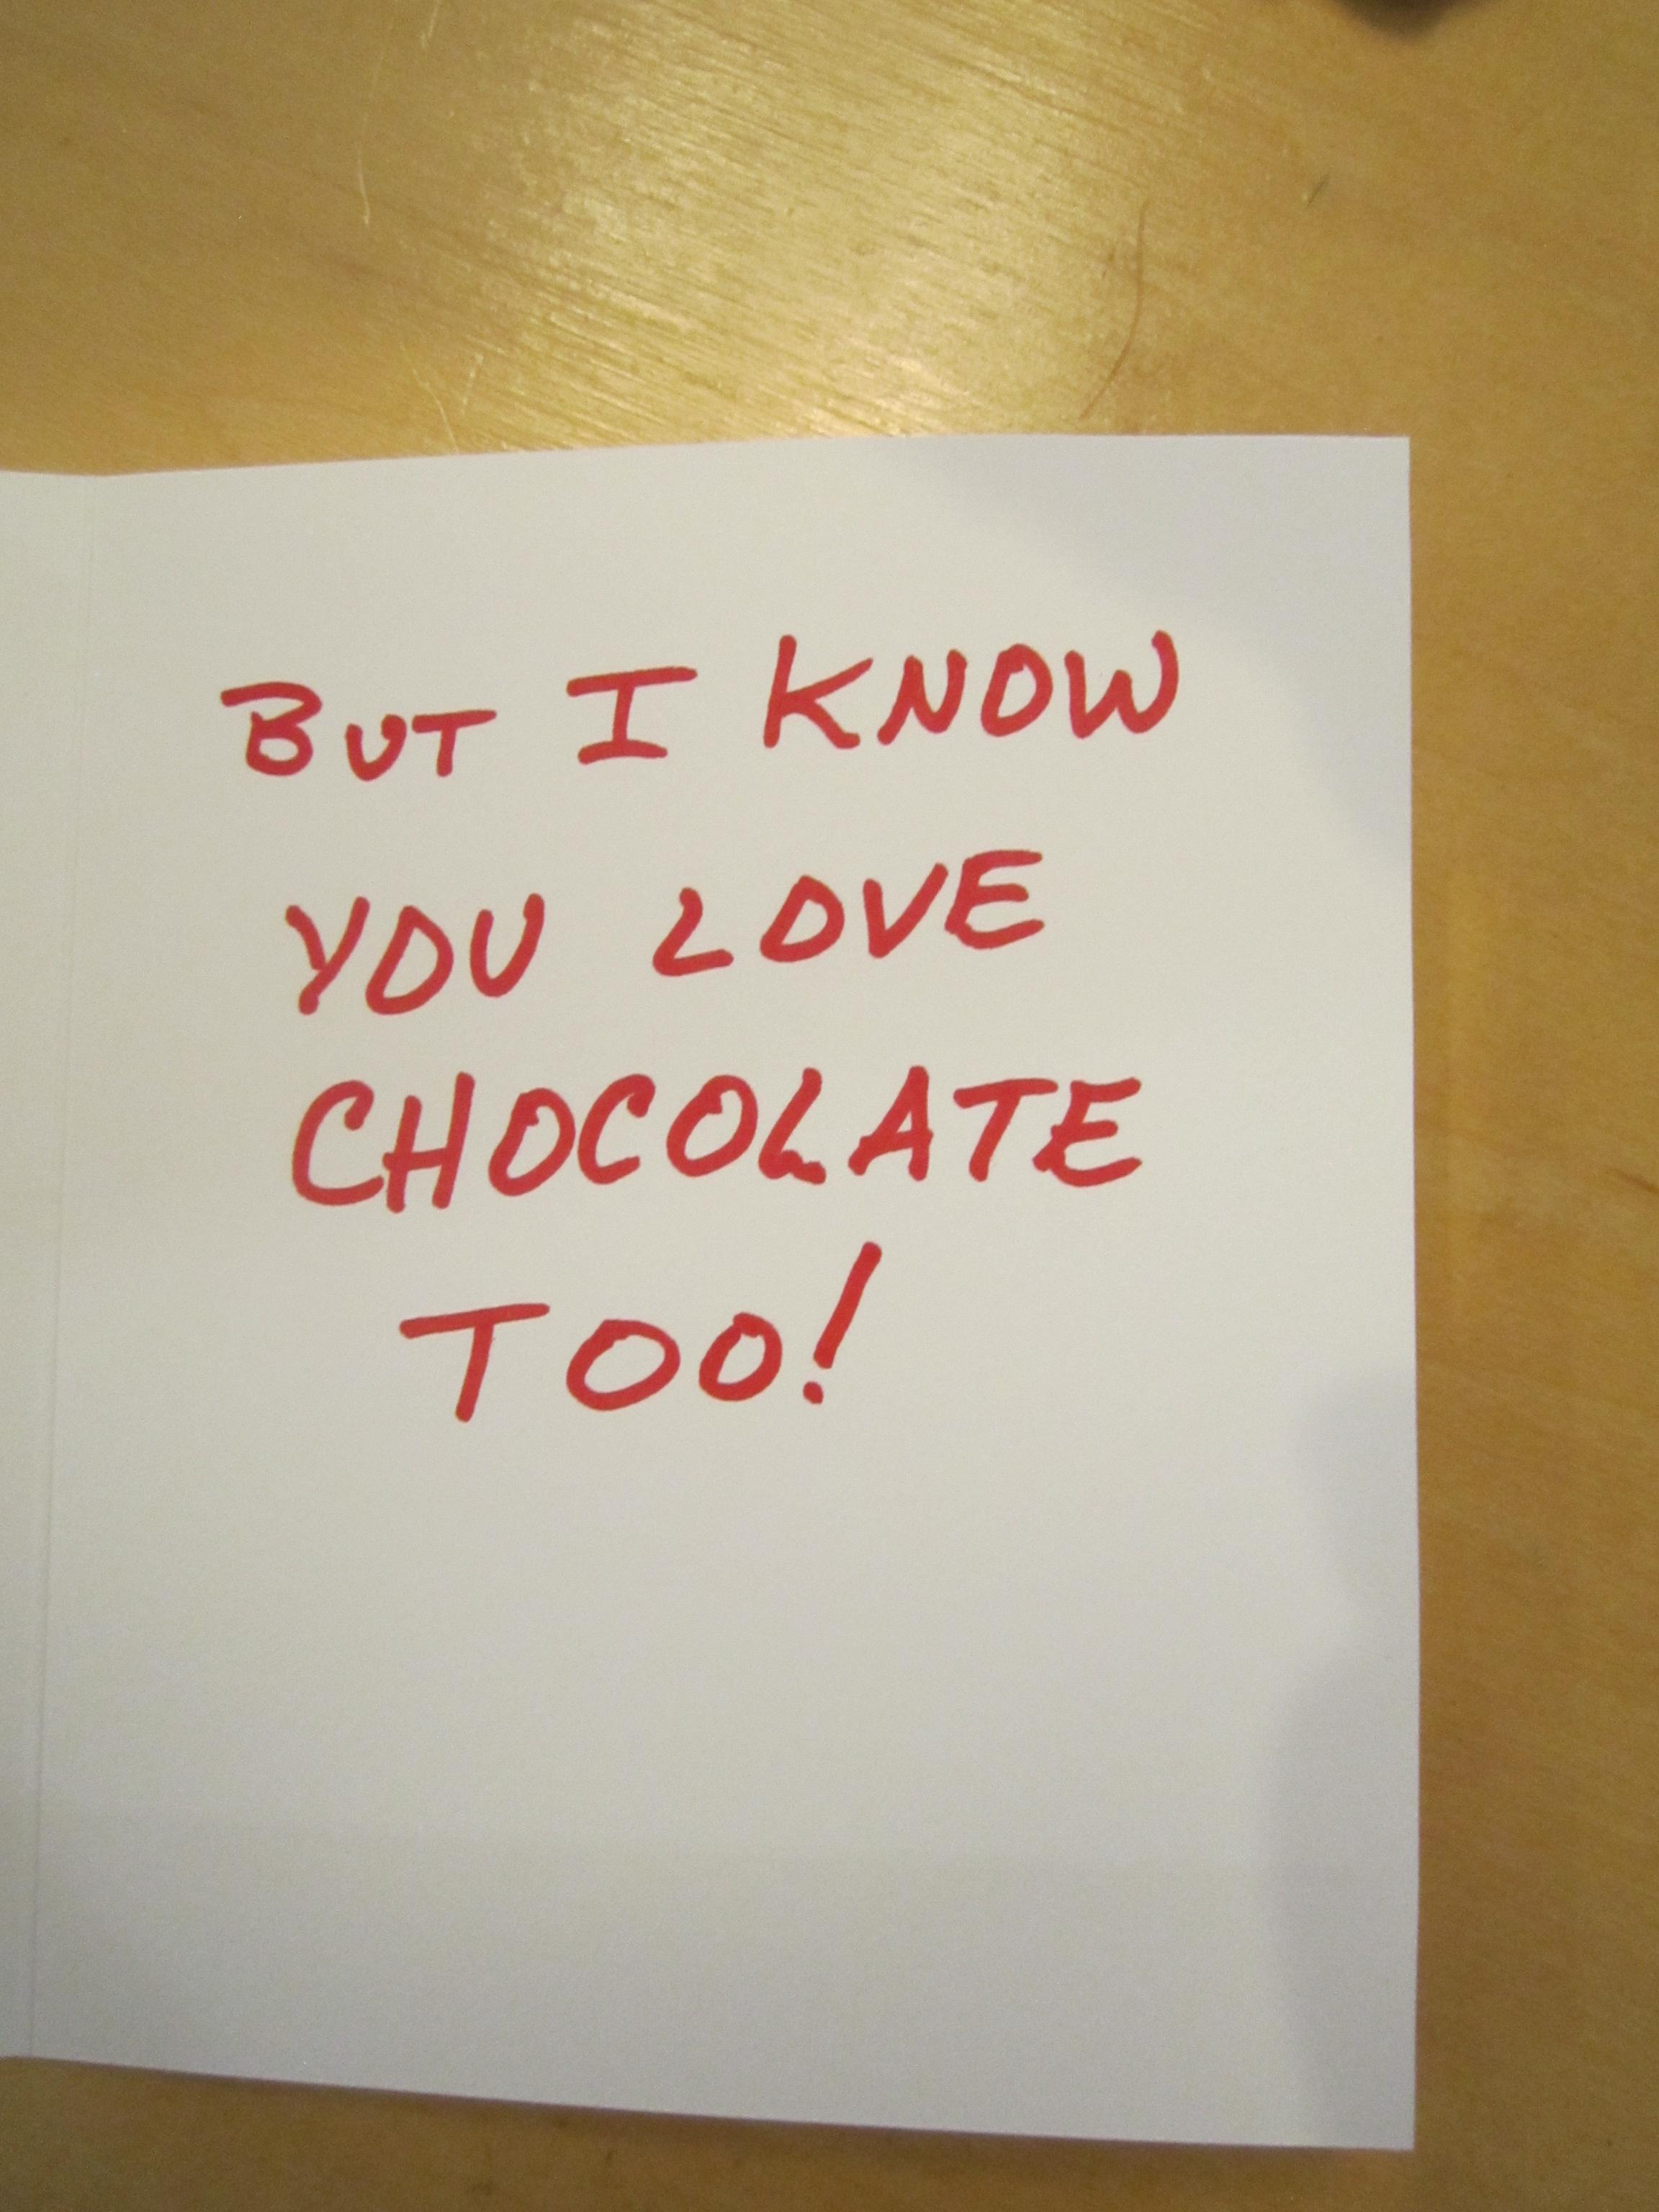 BUT I KNOW
YOU LOVE
CHOCOLATE
TOO!